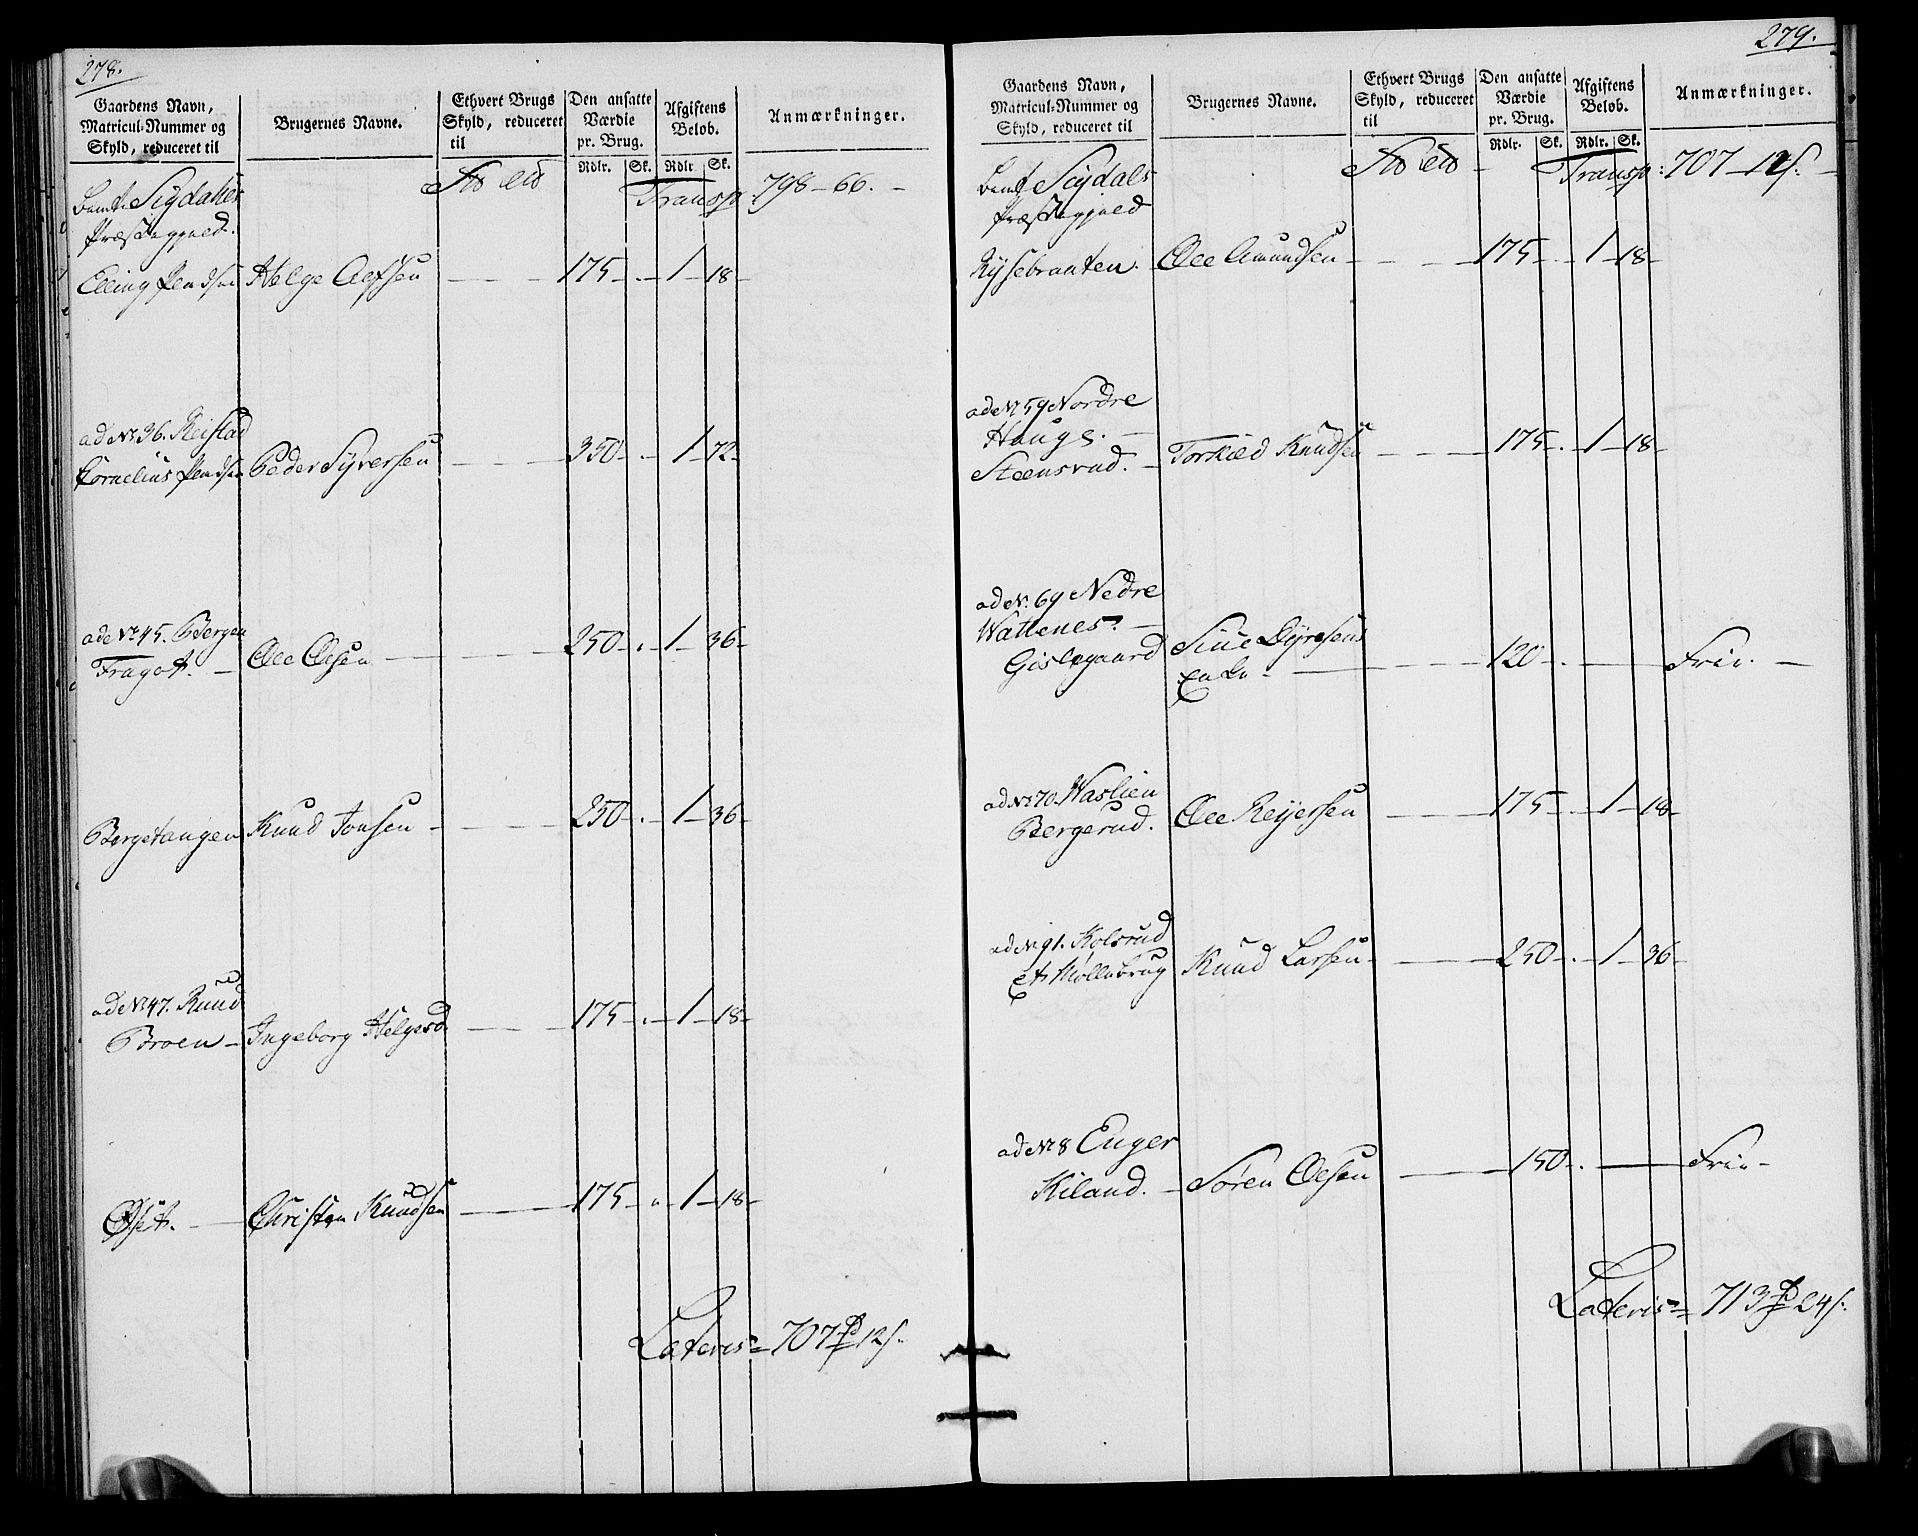 278.
Gaardens Navn,
Matricul-Nummer og
Skyld, reduceret til
Brugernes Navne.
Ethvert Brugs
Skyld, reduceret
til
Den ansatte
Værdie
pr. Brug.
Rdlr. Sk.
Afgiftens
Beløb.
Rdlr Sk.
Anmærkninger.
Transp 798-66.-
Sigdahls
Præstegjeld.
Elling Helge Olsen 175-.-1-18-
ad No 36. Reistad
Cornelius Peder Syversen 350-.-1-72-
ad No 45. Bergan
Fragot. - Ole Olsen 250-.-1-36-
Bergetangen Knud Jonsen - 250-.-1-36-
ad No 47. Ruud
Broen - Ingeborg Helgesd. 175-.-1-18-
Øset. - Christen Knudsen 175-.-1-18-
Lateris = 707 Rd 12 s.
279.
Gaardens Navn,
Matricul-Nummer og
Skyld, reduceret til
Brugernes Navne.
Ethvert Brugs
Skyld, reduceret
til
Den ansatte
Værdie
pr. Brug.
Rdlr. Sk.
Afgiftens
Beløb.
Rdlr. Sk.
Anmærkninger.
Transp: 707-12 s.-
Sigdals
Præstegjeld
Rysebraaten. - Ole Amundsen - 175-.-1-18-
ad No 59 Nordre
Hauge. -
Steensrud. - Torkild Knudsen 175-.-1-18-
ad No. 69 Nedre
Wattenes. -
Gislegaard Siue Gyresens
Enke - 120-.- Frie. -
ad No 70. Waslien
Bergerud. Ole Reijersen 175-.-1-18-
ad No 91. Kolsrud
et Møllebrug Knud Larsen - 250-.-1-36-
ad No 8 Enger
Kiland. - Søren Olsen 150-.- Frie -
Lateris = 713 Rd 24 s.